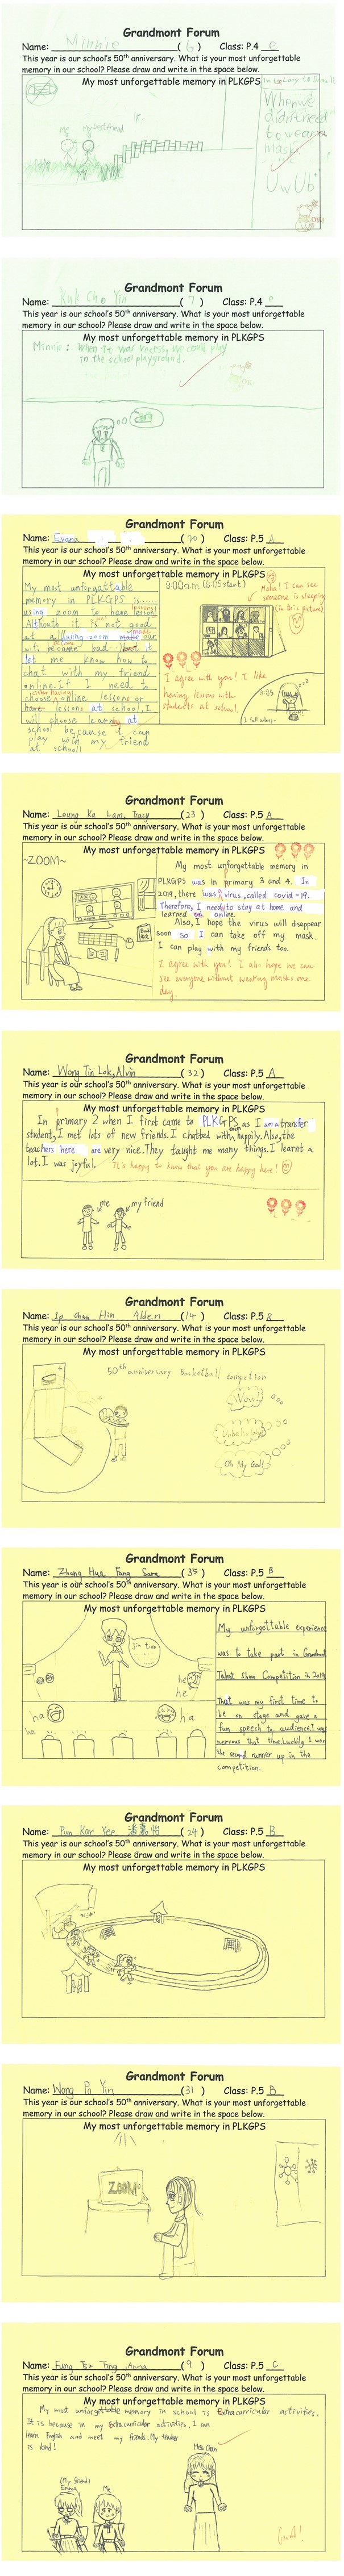 Grandmont Forum
Name: Minnie ( 6 ) Class: P.4 e
This year is our school's 50th anniversary. What is your most unforgettable
memory in our school? Please draw and write in the space below.
My most unforgettable memory in PLKGPS
When we
didn't need
to wear
mask.
UwUb
Me My best friend
Grandmont Forum
Name: Kuk Cho Yin ( 7 ) Class: P.4 e
This year is our school's 50th anniversary. What is your most unforgettable
memory in our school? Please draw and write in the space below.
My most unforgettable memory in PLKGPS
Minnie: When it was recess, we could play
in the school playground.
Grandmont Forum
Name: Evana ( 20 ) Class: P.5 A
This year is our school's 50th anniversary. What is your most unforgettable
memory in our school? Please draw and write in the space below.
My most unforgettable memory in PLKGPS
My most unforgattable
memory in PLKGPS is......
using zoom to have lesson.
Although it is not good
at all, using zoom make our
become bad. But it
let me know how to
chat with my friend
online. If I need to
choose online lessons or
have lessons at school, I
will choose learning at
school because I can
play with my friend
at school!
8:00a.m. (8:05 start)
Haha! I can see
someone is sleeping
(in this picture)
I agree with you! I like
having lesson with
students at school.
8:05
I fall asleep~
Grandmont Forum
Name: Leung Ka Lam, Tracy ( 23 ) Class: P.5 A
This year is our school's 50th anniversary. What is your most unforgettable
memory in our school? Please draw and write in the space below.
My most unforgettable memory in PLKGPS
~ZOOM~
My most unforgettable memory in
PLKGPS was in primary 3 and 4. In
2019, there was a virus, called covid-19.
Therefore, I need to stay at home and
learned on online.
Also, I hope the virus will disappear
soon so I can take off my mask.
I can play with my friends too.
I agree with you! I also hope we can
see everyone without wearing masks one
day.
Grandmont Forum
Name: Wong Tin Lok, Alvin ( 32 ) Class: P.5 A
This year is our school's 50th anniversary. What is your most unforgettable
memory in our school? Please draw and write in the space below.
My most unforgettable memory in PLKGPS
In primary 2 when I first came to PLKGPS as I am a transfer
student, I met lots of new friends. I chatted with them happily. Also, the
teachers here are very nice. They taught me many things. I learnt a
lot. I was joyful. It's happy to know that you are happy here!
me my friend
Grandmont Forum
Name: Ip Chun Hin Alden ( 14 ) Class: P.5 B
This year is our school's 50th anniversary. What is your most unforgettable
memory in our school? Please draw and write in the space below.
My most unforgettable memory in PLKGPS
50th anniversary Basketball
Wow!
Oh My God!
Grandmont Forum
Name: Zhang Hua Fang Sara ( 35 ) Class: P.5 B
This year is our school's 50th anniversary. What is your most unforgettable
memory in our school? Please draw and write in the space below.
My most unforgettable memory in PLKGPS
My unforgettable experience
was to take part in Grandmont
Talent Show Competition in 2019.
That was my first time to
be on stage and gave a
fun speech to audience. I was
nervous that time. Luckily I won
the second runner up in the
competition.
he
he
ha
ha
ha
Grandmont Forum
Name: Pun Kar Yee 潘嘉怡 ( 24 ) Class: P.5 B
This year is our school's 50th anniversary. What is your most unforgettable
memory in our school? Please draw and write in the space below.
My most unforgettable memory in PLKGPS
Grandmont Forum
Name: Wong Po Yin ( 31 ) Class: P.5 B
This year is our school's 50th anniversary. What is your most unforgettable
memory in our school? Please draw and write in the space below.
My most unforgettable memory in PLKGPS
ZOOM
Grandmont Forum
Name: Fung Tsz Ting Anna ( 9 ) Class: P.5 C
This year is our school's 50th anniversary. What is your most unforgettable
memory in our school? Please draw and write in the space below.
My most unforgettable memory in PLKGPS
My most unforgettable memory in school is Extracurricular activities.
It is because in my Extracurricular activities, I can
learn English and meet my friends. My teacher
is kind!
Miss Chan
(My friend)
Emma Me
Good!